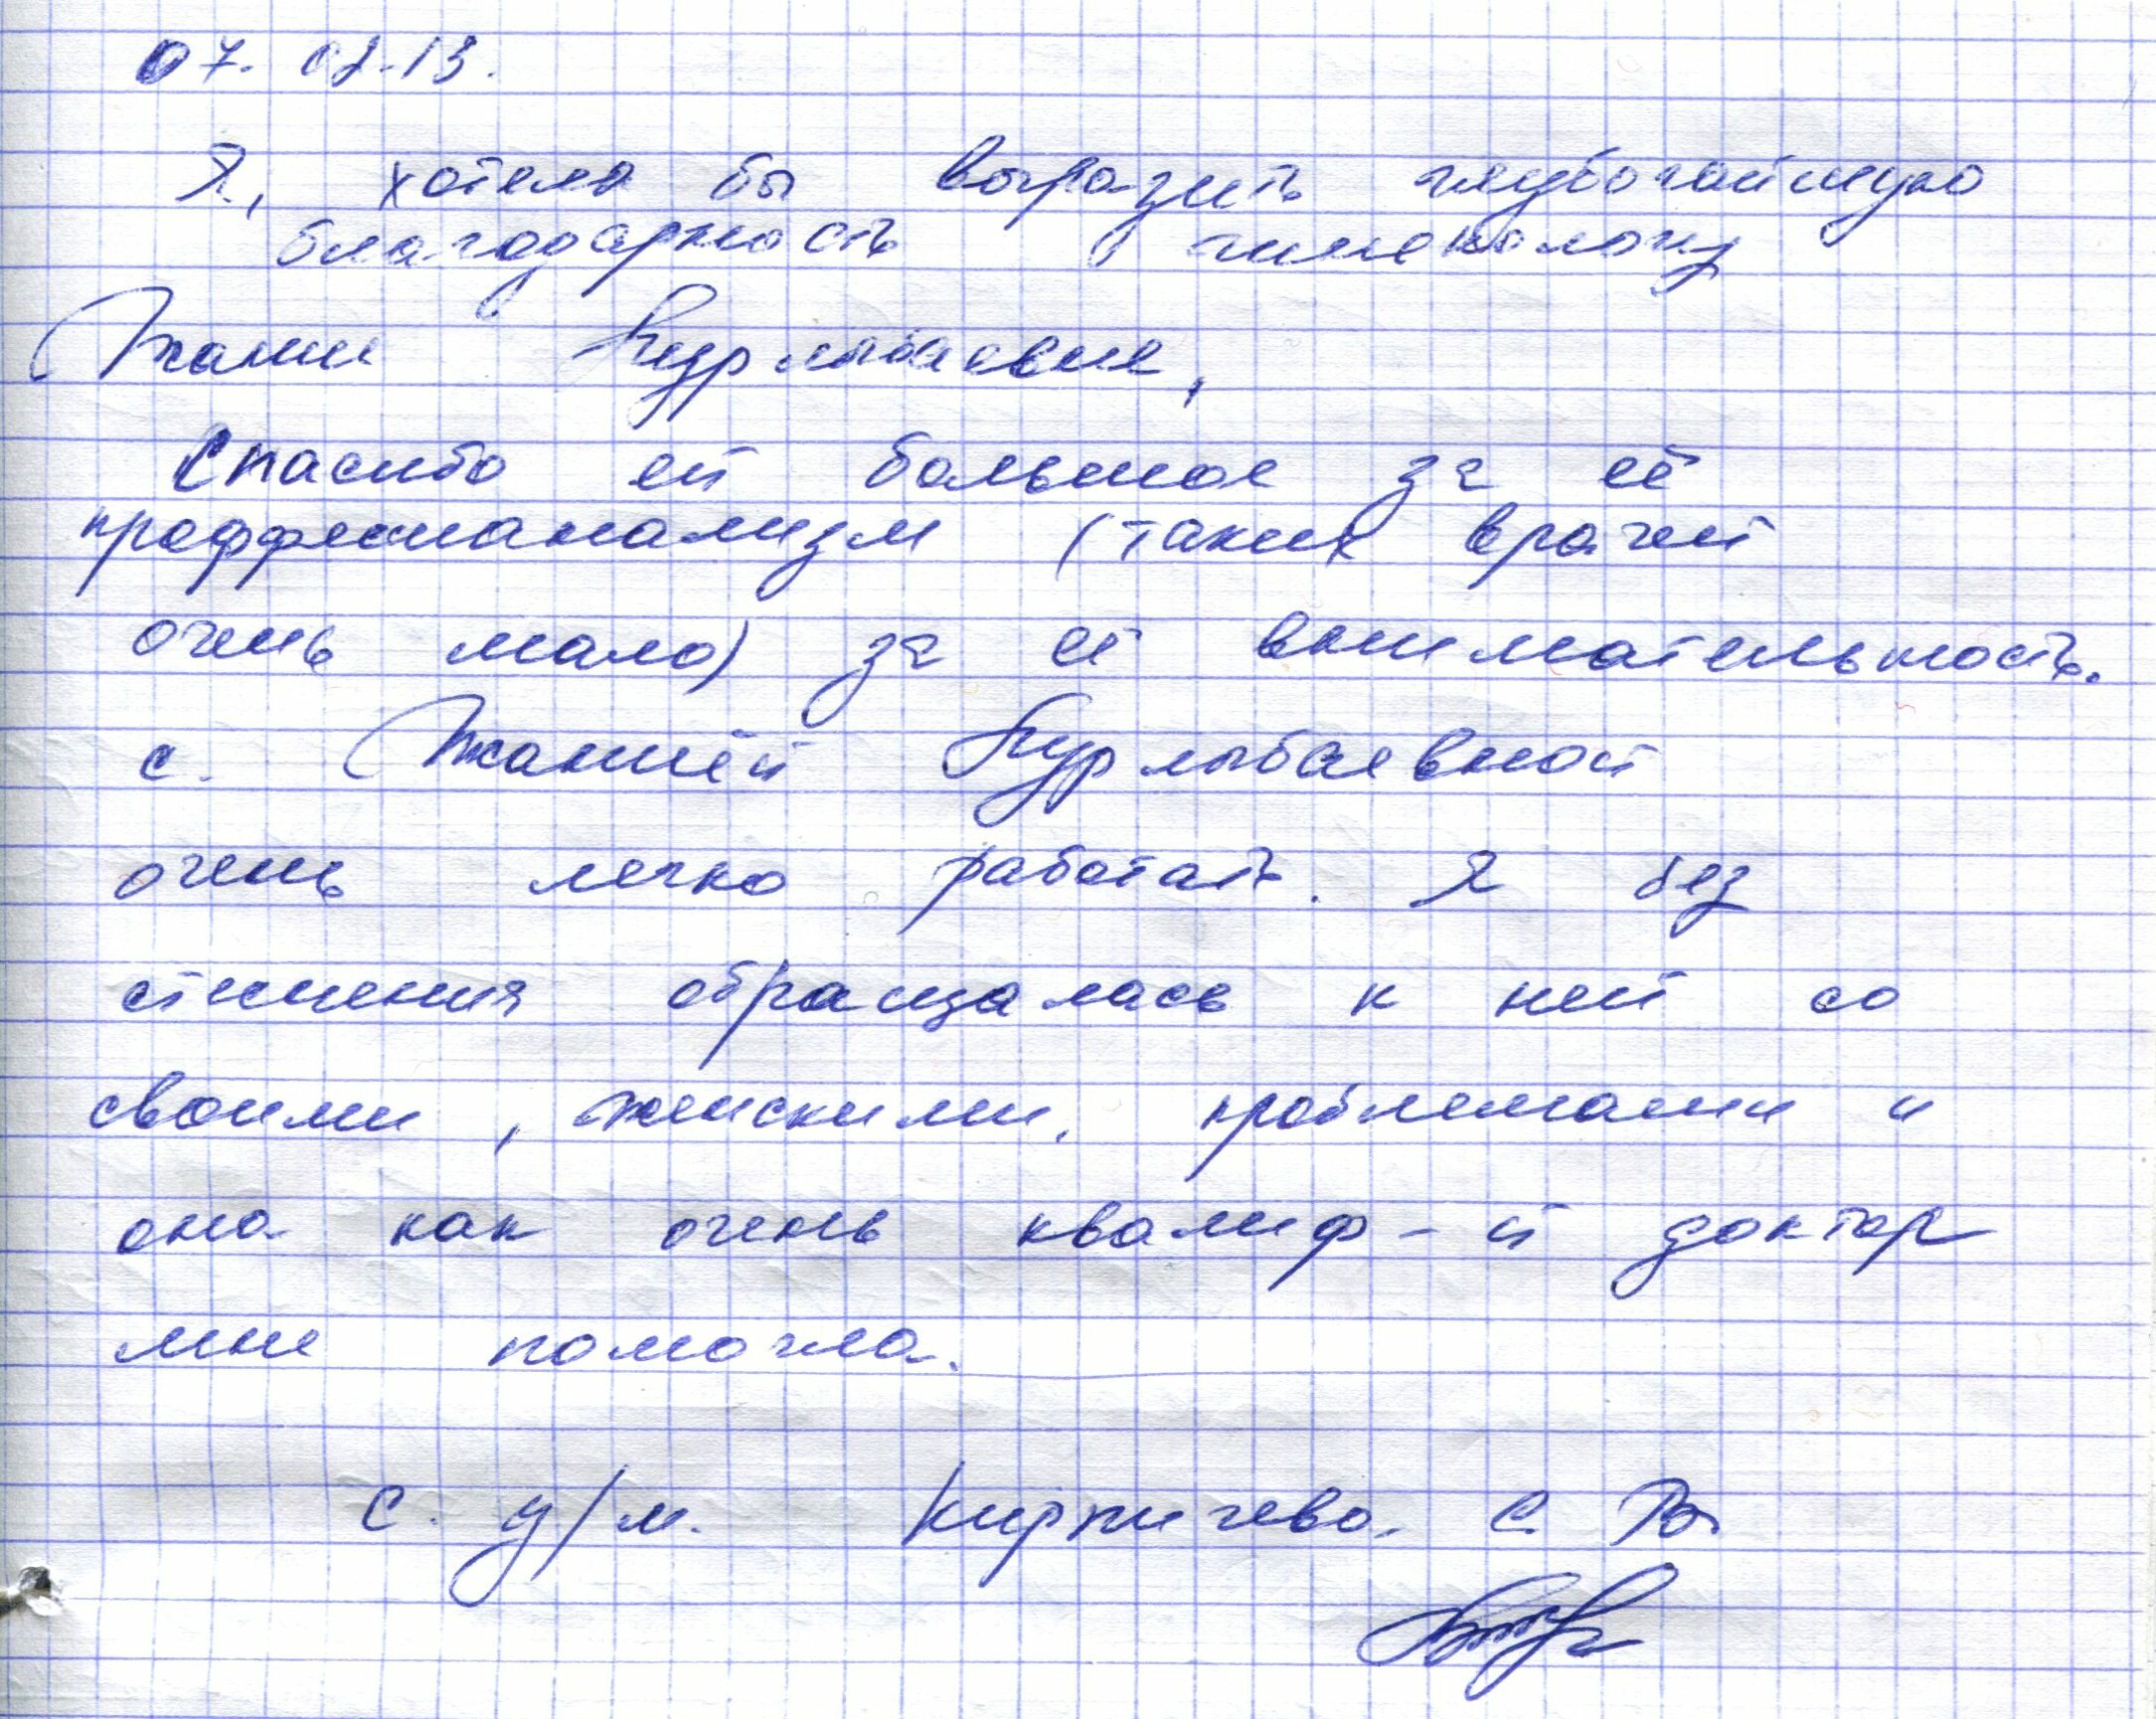 07. 02.13.
Я, хотела бы выразить глубочайшую
благодарность гинекологу
Жанне Нурлыбаевне,
Спасибо ей большое за её
проффесианализм (таких врачей
очень мало) за её внимательность.
с. Жанней Нурлыбаевной
очень легко работать. Я без
стеснения обращалась к ней со
своими, женскими, проблемами и
она как очень квалиф-й доктор
мне помогла.
С. у/м. Кирпичева. С. В.